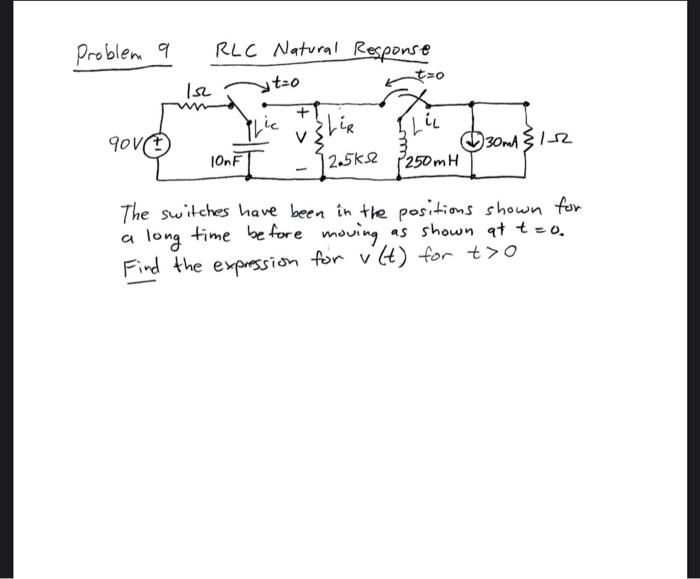 Problem 9 RLC Natural Response
1Ω t=0 t=0
90V + - 10nF ic + v - iR 2.5kΩ iL 250mH 30mA 1Ω
The switches have been in the positions shown for
a long time before moving as shown at t=0.
Find the expression for v(t) for t>0